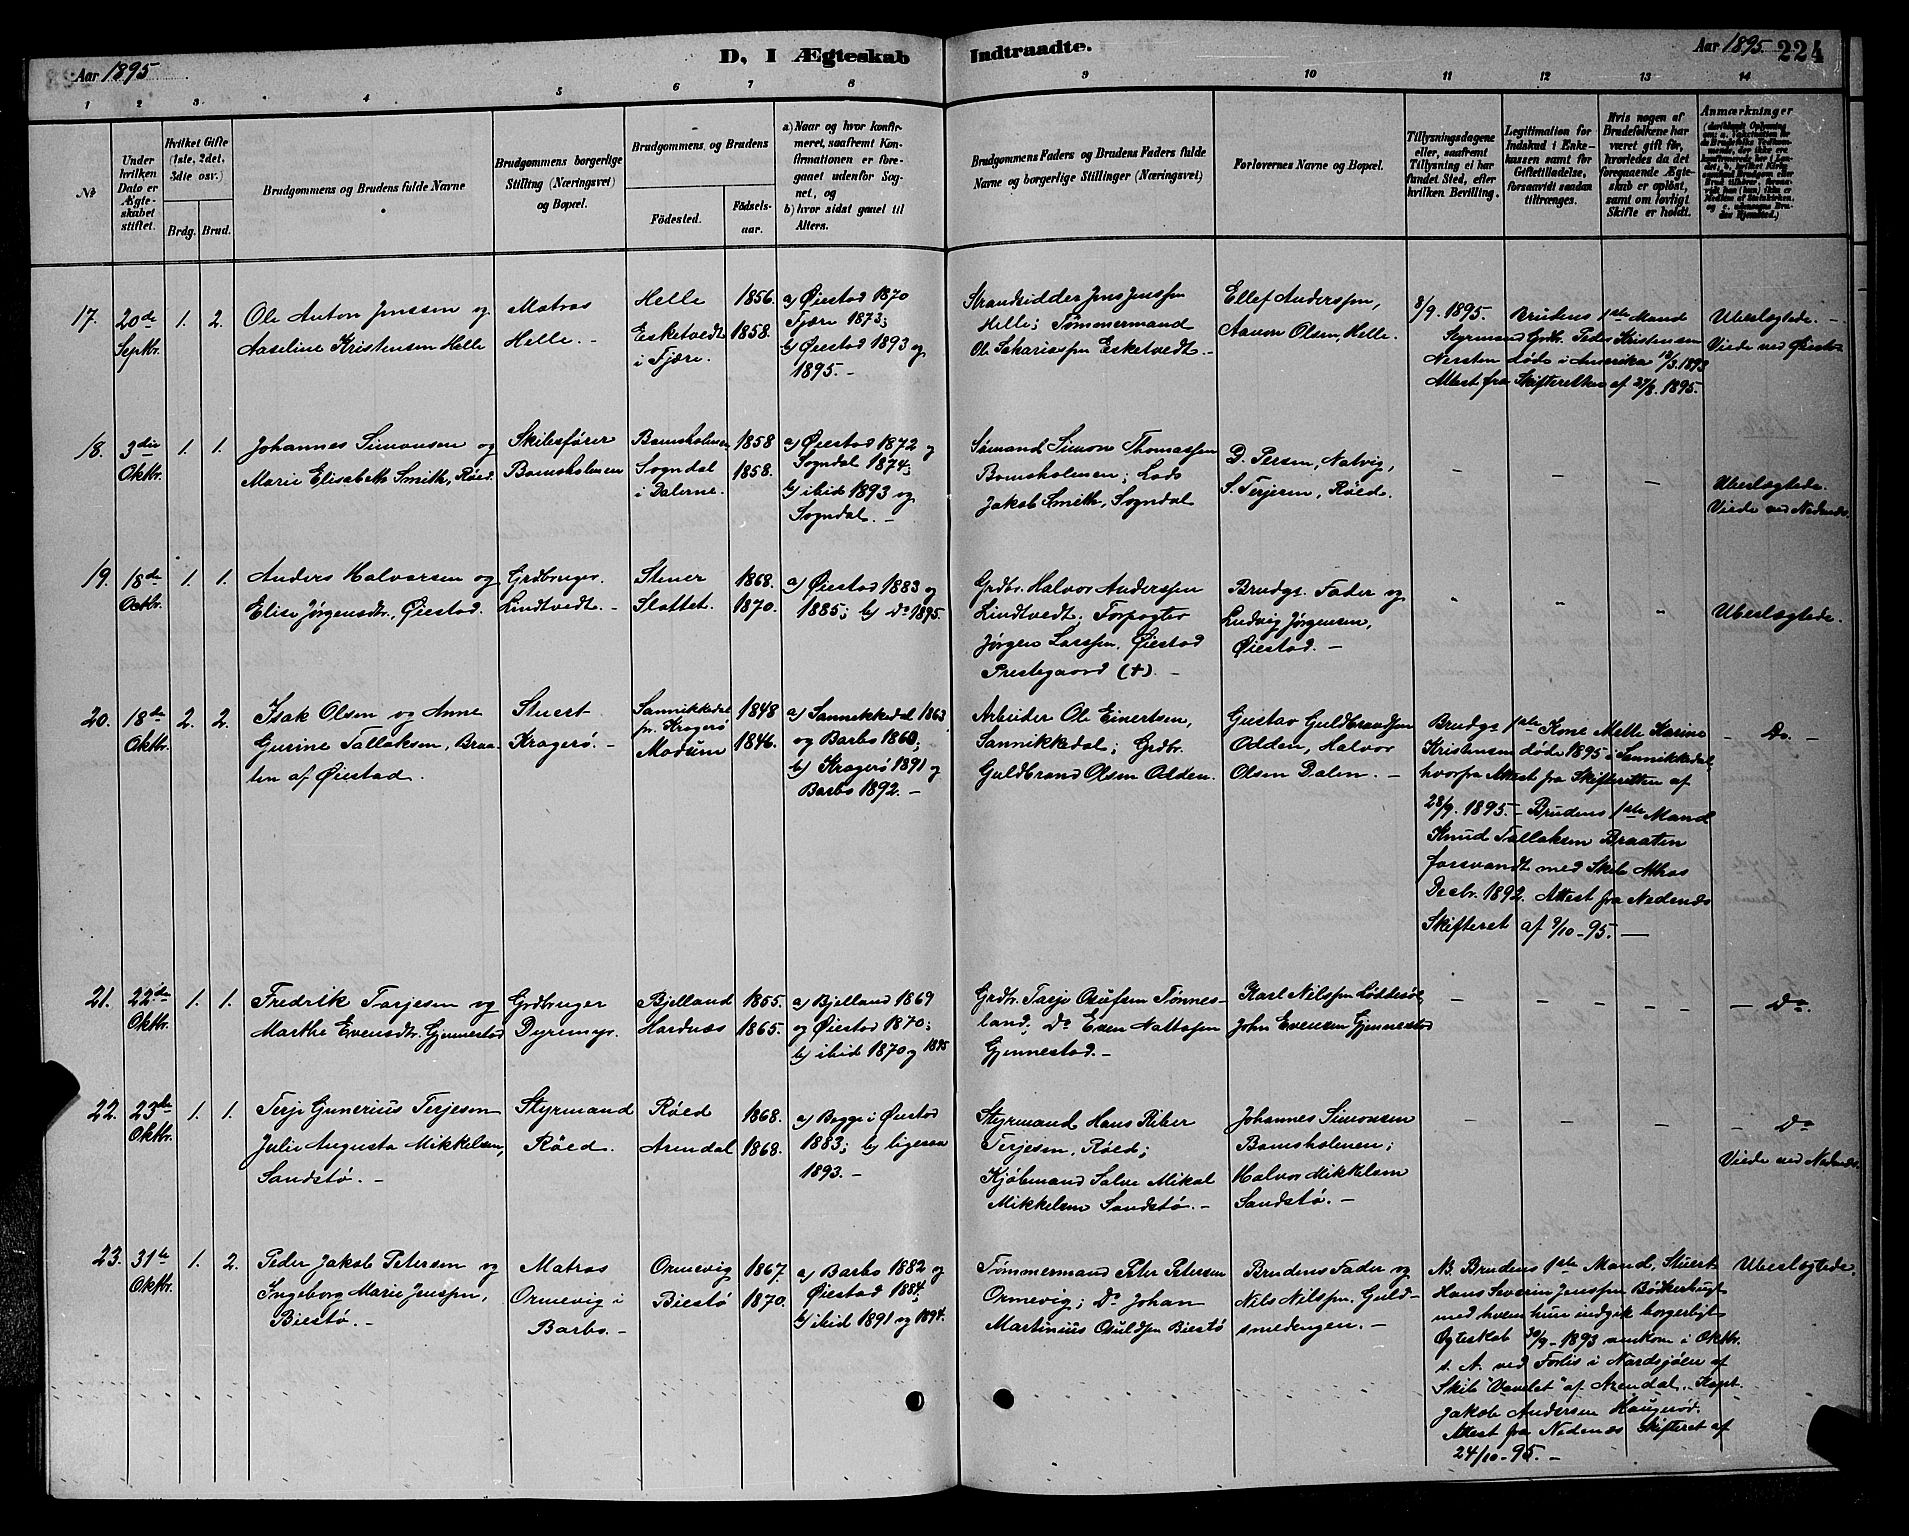 Aar 1895
D, I Ægteskab Indtraadte.
Aar 1895 224
1 2 3 4 5 6 7 8 9 10 11 12 13 14
№
Under hvilken Dato er Ægteskabet stiftet.
Hvilket Gifte (1ste, 2det, 3die osv.)
Brdg. Brud.
Brudgommens og Brudens fulde Navne
Brudgommens borgerlige Stilling (Næringsvei) og Bopæl.
Brudgommens og Brudens
Fødested.
Fødselsaar.
a) Naar og hvor konfirmeret, saafremt Konfirmationen er foregaaet udenfor Sognet, og
b) hvor sidst gaaet til Alters.
Brudgommens Faders og Brudens Faders fulde Navne og borgerlige Stillinger (Næringsvei)
Forlovernes Navne og Bopæl.
Tillysningsdagene eller, saafremt Tillysning ei har fundet Sted, efter hvilken Bevilling.
Legitimation for Indskud i Enkekassen samt for Giftetilladelse, forsaavidt saadan tiltrænges.
Hvis nogen af Brudefolkene har været gift før, hvorledes da det foregaaende Ægteskab er opløst, samt om lovligt Skifte er holdt.
Anmærkninger
17. 20de Septbr. 1. 2.
Ole Anton Jenssen og
Aaseline Kristensen Helle
Matros
Helle. -
Helle 1856.
Esketvedt i Fjære. 1858.
a) Øiestad 1870
Fjære 1873;
b) Øiestad 1893 og
1895. -
Strandsidder Jens Jenssen
Helle; Tømmermand
Ole Sakariassen Esketvedt -
Ellef Anderssen,
Aanon Olsen, Helle.
8/9. 1895. Brudens 1ste Mand
Styrmand Grdbr. Peder Kristensen
Nersten døde i Amerika 12/3. 1893
Attest fra Skifteretten af 27/8. 1895.
Ubeslægtede. -
Viede ved Øiestad
18. 3die Oktbr. 1. 1.
Johannes Simonsen og
Marie Elisabeth Smith, Røed.
Skibsfører
Bomsholmen
Bomsholmen 1858
Sogndal i Dalerne. 1858.
a) Øiestad 1872 og
Sogndal 1874;
b) ibid 1893 og
Sogndal. -
Sømand Simon Thomassen
Bomsholmen; Lods
Jakob Smith, Sogndal
D. Persen, Natvig,
S. Terjesen, Røed.
- - -
Ubeslægtede.
Viede ved Nedenæs.
19. 18de Octbr. 1. 1.
Anders Halvorsen og
Elise Jørgensdtr. Øiestad.
Grdbruger.
Lindtvedt. -
Stener 1868.
Slottet. 1870.
a) Øiestad 1883 og
1885; b) Do 1895.
Grdbr. Halvor Anderssen
Lindtvedt. Forpagter
Jørgen Larssen, Øiestad
Prestegaard (+). -
Brudgs. Fader og
Ludvig Jørgensen,
Øiestad. -
" " "
Ubeslægtede.
20. 18de Oktbr. 2. 2.
Isak Olsen og Anne
Gurine Tallaksen, Braaten af Øiestad.
Stuert
Kragerø. -
Sannikkedal pr. Kragerø 1848
Modum 1846.
a) Sannikkedal 1863
og Barbo 1860;
b) Kragerø 1891 og
Barbo 1892. -
Arbeider Ole Einertsen,
Sannikkedal; Grdbr.
Guldbrand Olsen Odden.
Gustav Guldbrandsen
Odden, Halvor
Olsen Dalen. -
Brudgs 1ste Kone Mette Karine
Kristensen døde 1895 i Sannikkedal
hvorfra Attest fra Skifteretten af
28/9. 1895. - Brudens 1ste Mand
Knud Tallaksen Braaten
forsvandt med Skib Athos
Decbr. 1892. Attest fra Nedenæs
Skifteret af 9/10 - 95. -
- Do. -
21. 22de Oktbr. 1. 1.
Fredrik Tarjesen og
Marthe Evensdtr. Gjennestad
Grdbruger
Dyremyr.
Bjelland 1855.
Hardnæs 1865.
a) Bjelland 1869
og Øiestad 1870;
b) ibid 1870 og 1895
Grdbr. Tarje Osufsen Tønnesland; Do Even Nattasen
Gjennestad. -
Karl Nilssen Løddesøl,
John Evensen Gjennestad
- - -
- Do.
22. 23de Oktbr. 1. 1.
Terje Gunerius Terjesen
Julie Augusta Mikkelsen,
Sandstø. -
Styrmand
Røed.
Røed 1868.
Arendal 1868.
a) Begge i Øiestad
1883; b) ligesaa
1893. -
Styrmand Hans Riber
Terjesen, Røed;
Kjøbmand Salve Mikal
Mikkelsen Sandstø. -
Johannes Simonsen
Bomsholmen;
Halvor Mikkelsen
Sandstø. -
- - -
- Do
Viede ved Nedenæs.
23. 31te Oktbr. 1. 2.
Peder Jakob Petersen og
Ingeborg Marie Jenssen,
Biestø. -
Matros
Ormevig i
Barbo. -
Ormevig 1867.
Biestø 1870.
a) Barbo 1882 og
Øiestad 1884;
b) ibid 1891 og 1894.
Tømmermand Peter Petersen
Ormevig; Do Johan
Martinius Osuldsen Biestø
Brudens Fader og
Nils Nilssen, Guldsmedengen. -
N. Brudens 1ste Mand, Stuert
Hans Severin Jenssen Bøkerhugt
med hvem hun indgik borgerligt
Ægteskab 30/9 - 1893 omkom i Oktbr.
s. A. ved Forlis i Nordsjøen af
Skib af Arendal. Kapt.
Jakob Andersen Haugerød.
Attest fra Nedenæs Skifteret af
24/10 - 95. -
Ubeslægtede.